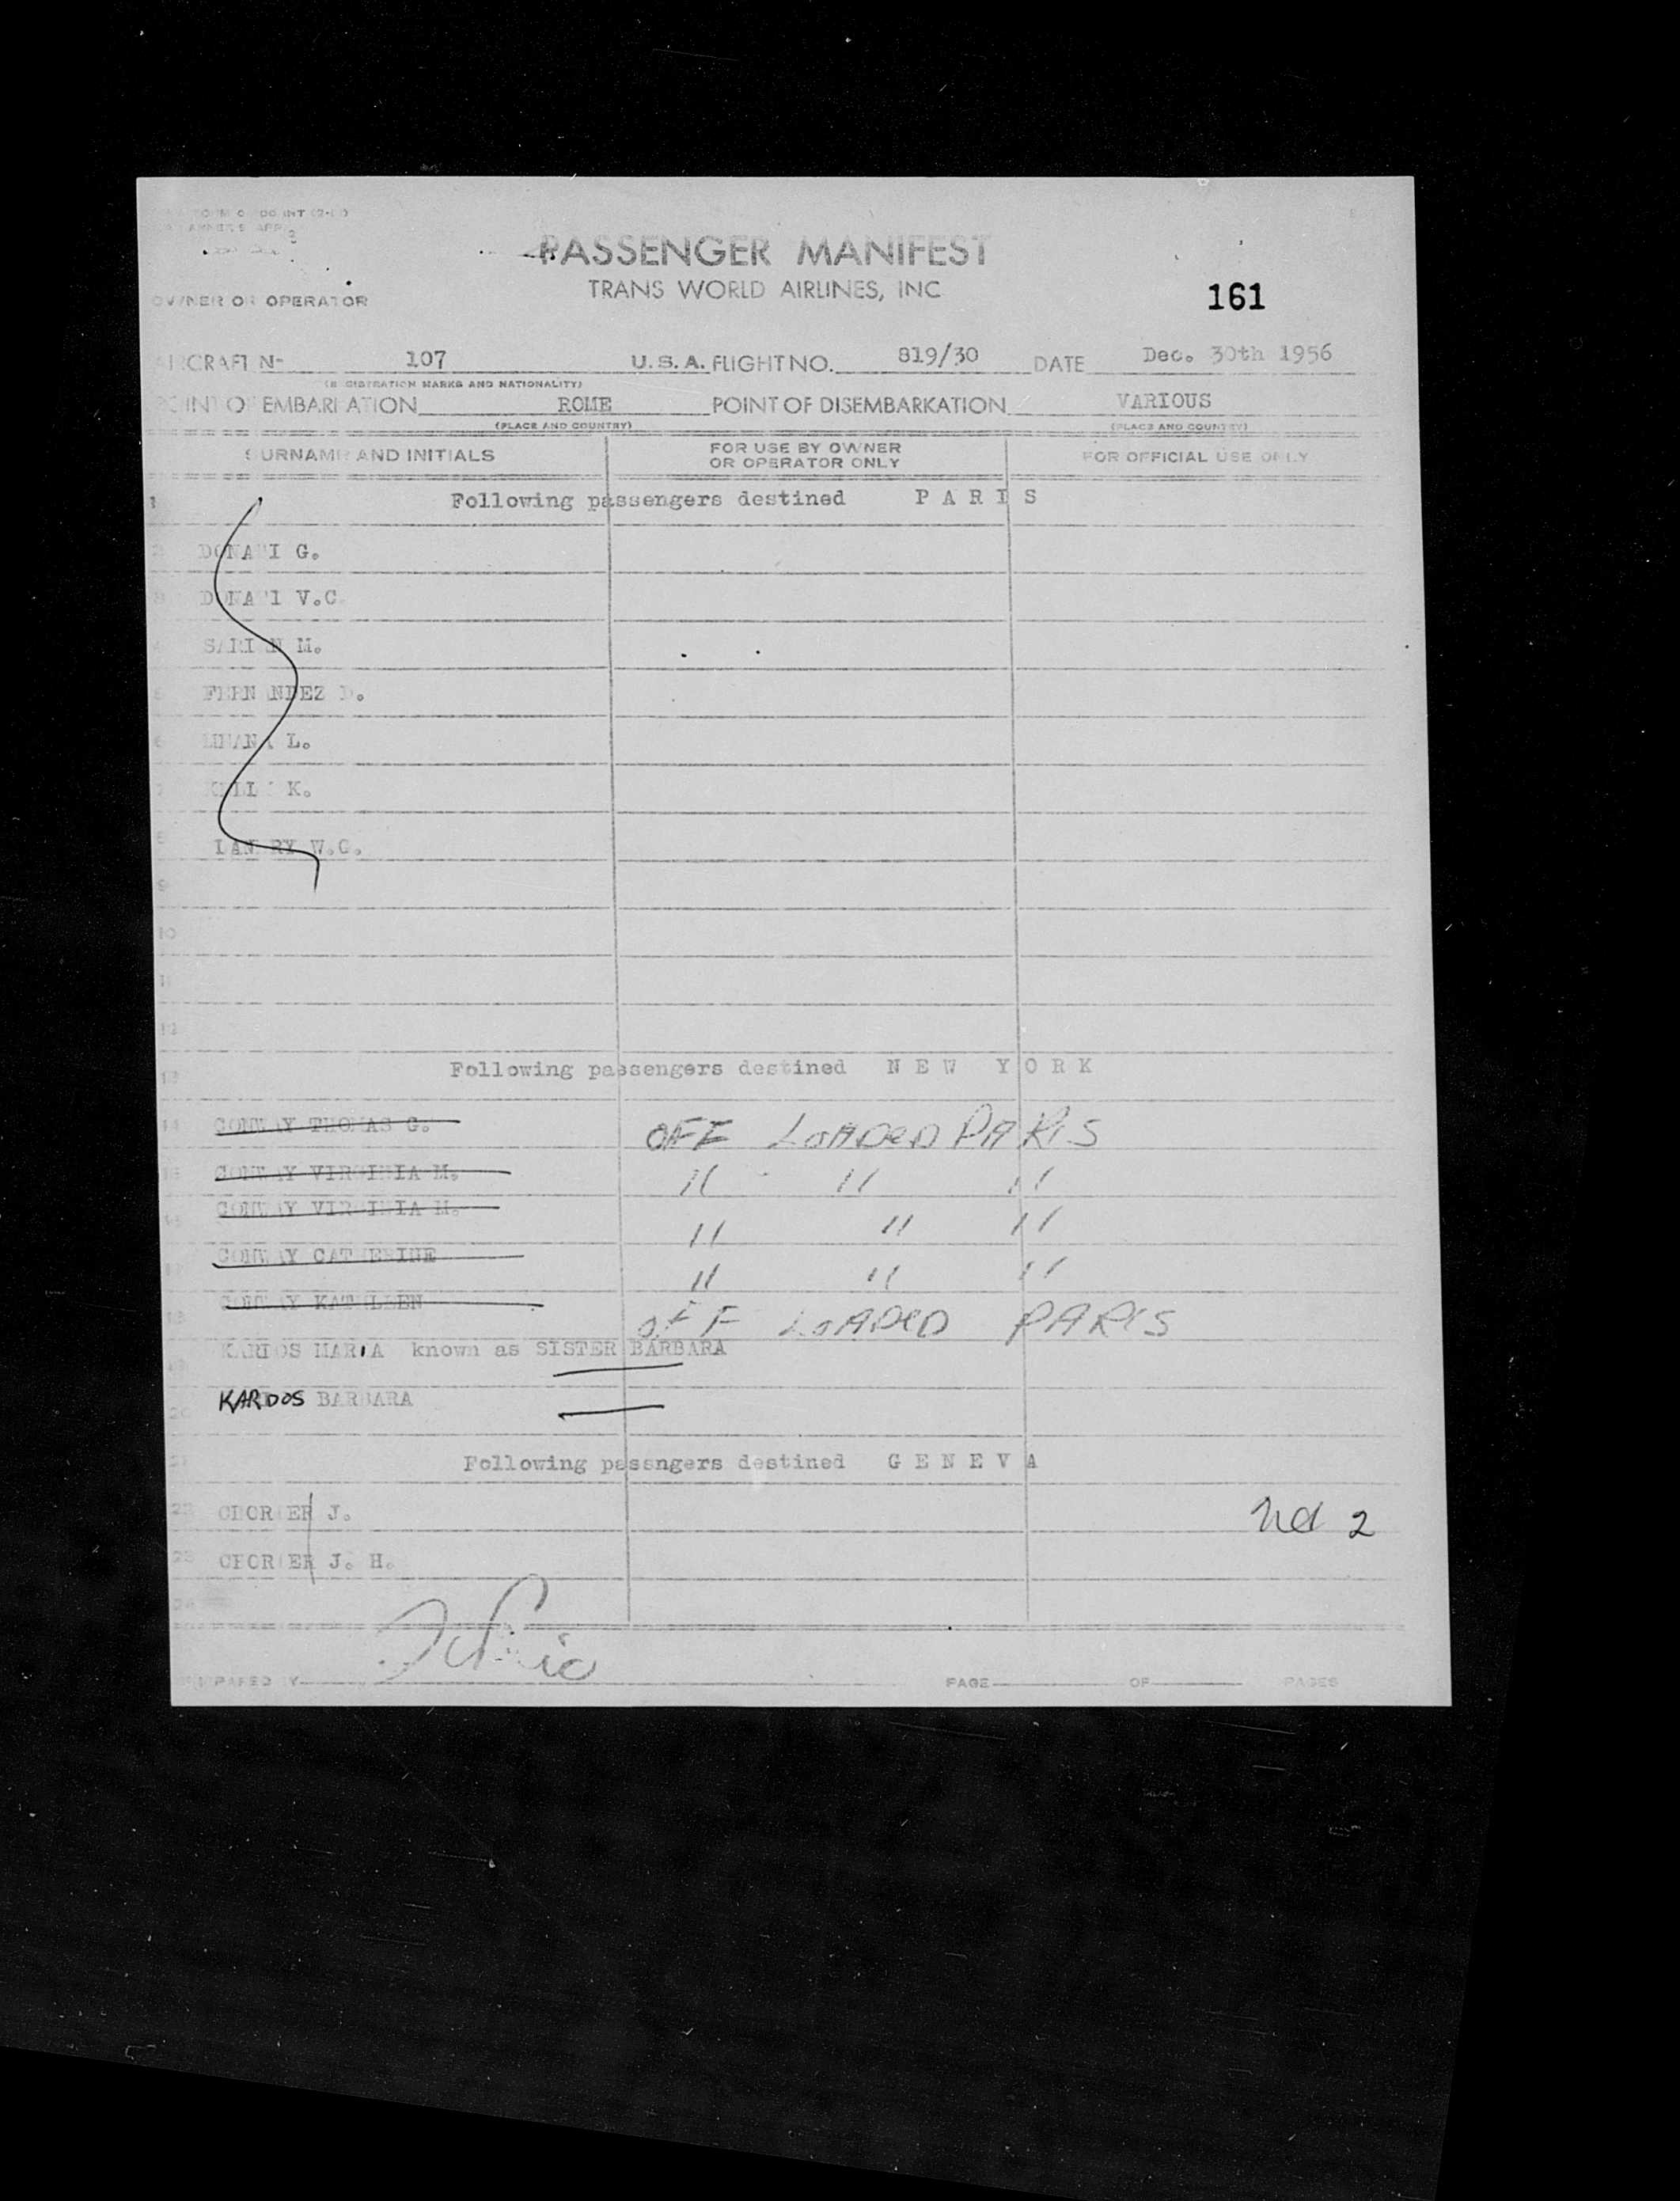 PASSENGER MANIFEST
TRANS WORLD AIRLINES, INC
161
OWNER OR OPERATOR
AIRCRAFT Nº 107 U.S.A. FLIGHT NO. 819/30 DATE Dec. 30th 1956
(REGISTRATION MARKS AND NATIONALITY)
POINT OF EMBARKATION ROME POINT OF DISEMBARKATION VARIOUS
(PLACE AND COUNTRY) (PLACE AND COUNTRY)
SURNAME AND INITIALS FOR USE BY OWNER OR OPERATOR ONLY FOR OFFICIAL USE ONLY
1 Following passengers destined P A R I S
2 DONATI G.
3 DONATI V.C.
4 M.
5 FERNANDEZ
6 L.
7 KELLY K.
8 W.C.
9
10
11
12
13 Following passengers destined N E W Y O R K
14 CONWAY THOMAS G. OFF LOADED PARIS
15 CONWAY VIRGINIA M. " " "
16 CONWAY VIRGINIA M. " " "
17 CONWAY CATHERINE " " "
18 CONWAY KATHLEEN OFF LOADED PARIS
19 MARIA known as SISTER BARBARA
20 KARDOS BARBARA
21 Following passngers destined G E N E V A
22 J. 2
23 J. H.
24
PREPARED BY PAGE OF PAGES